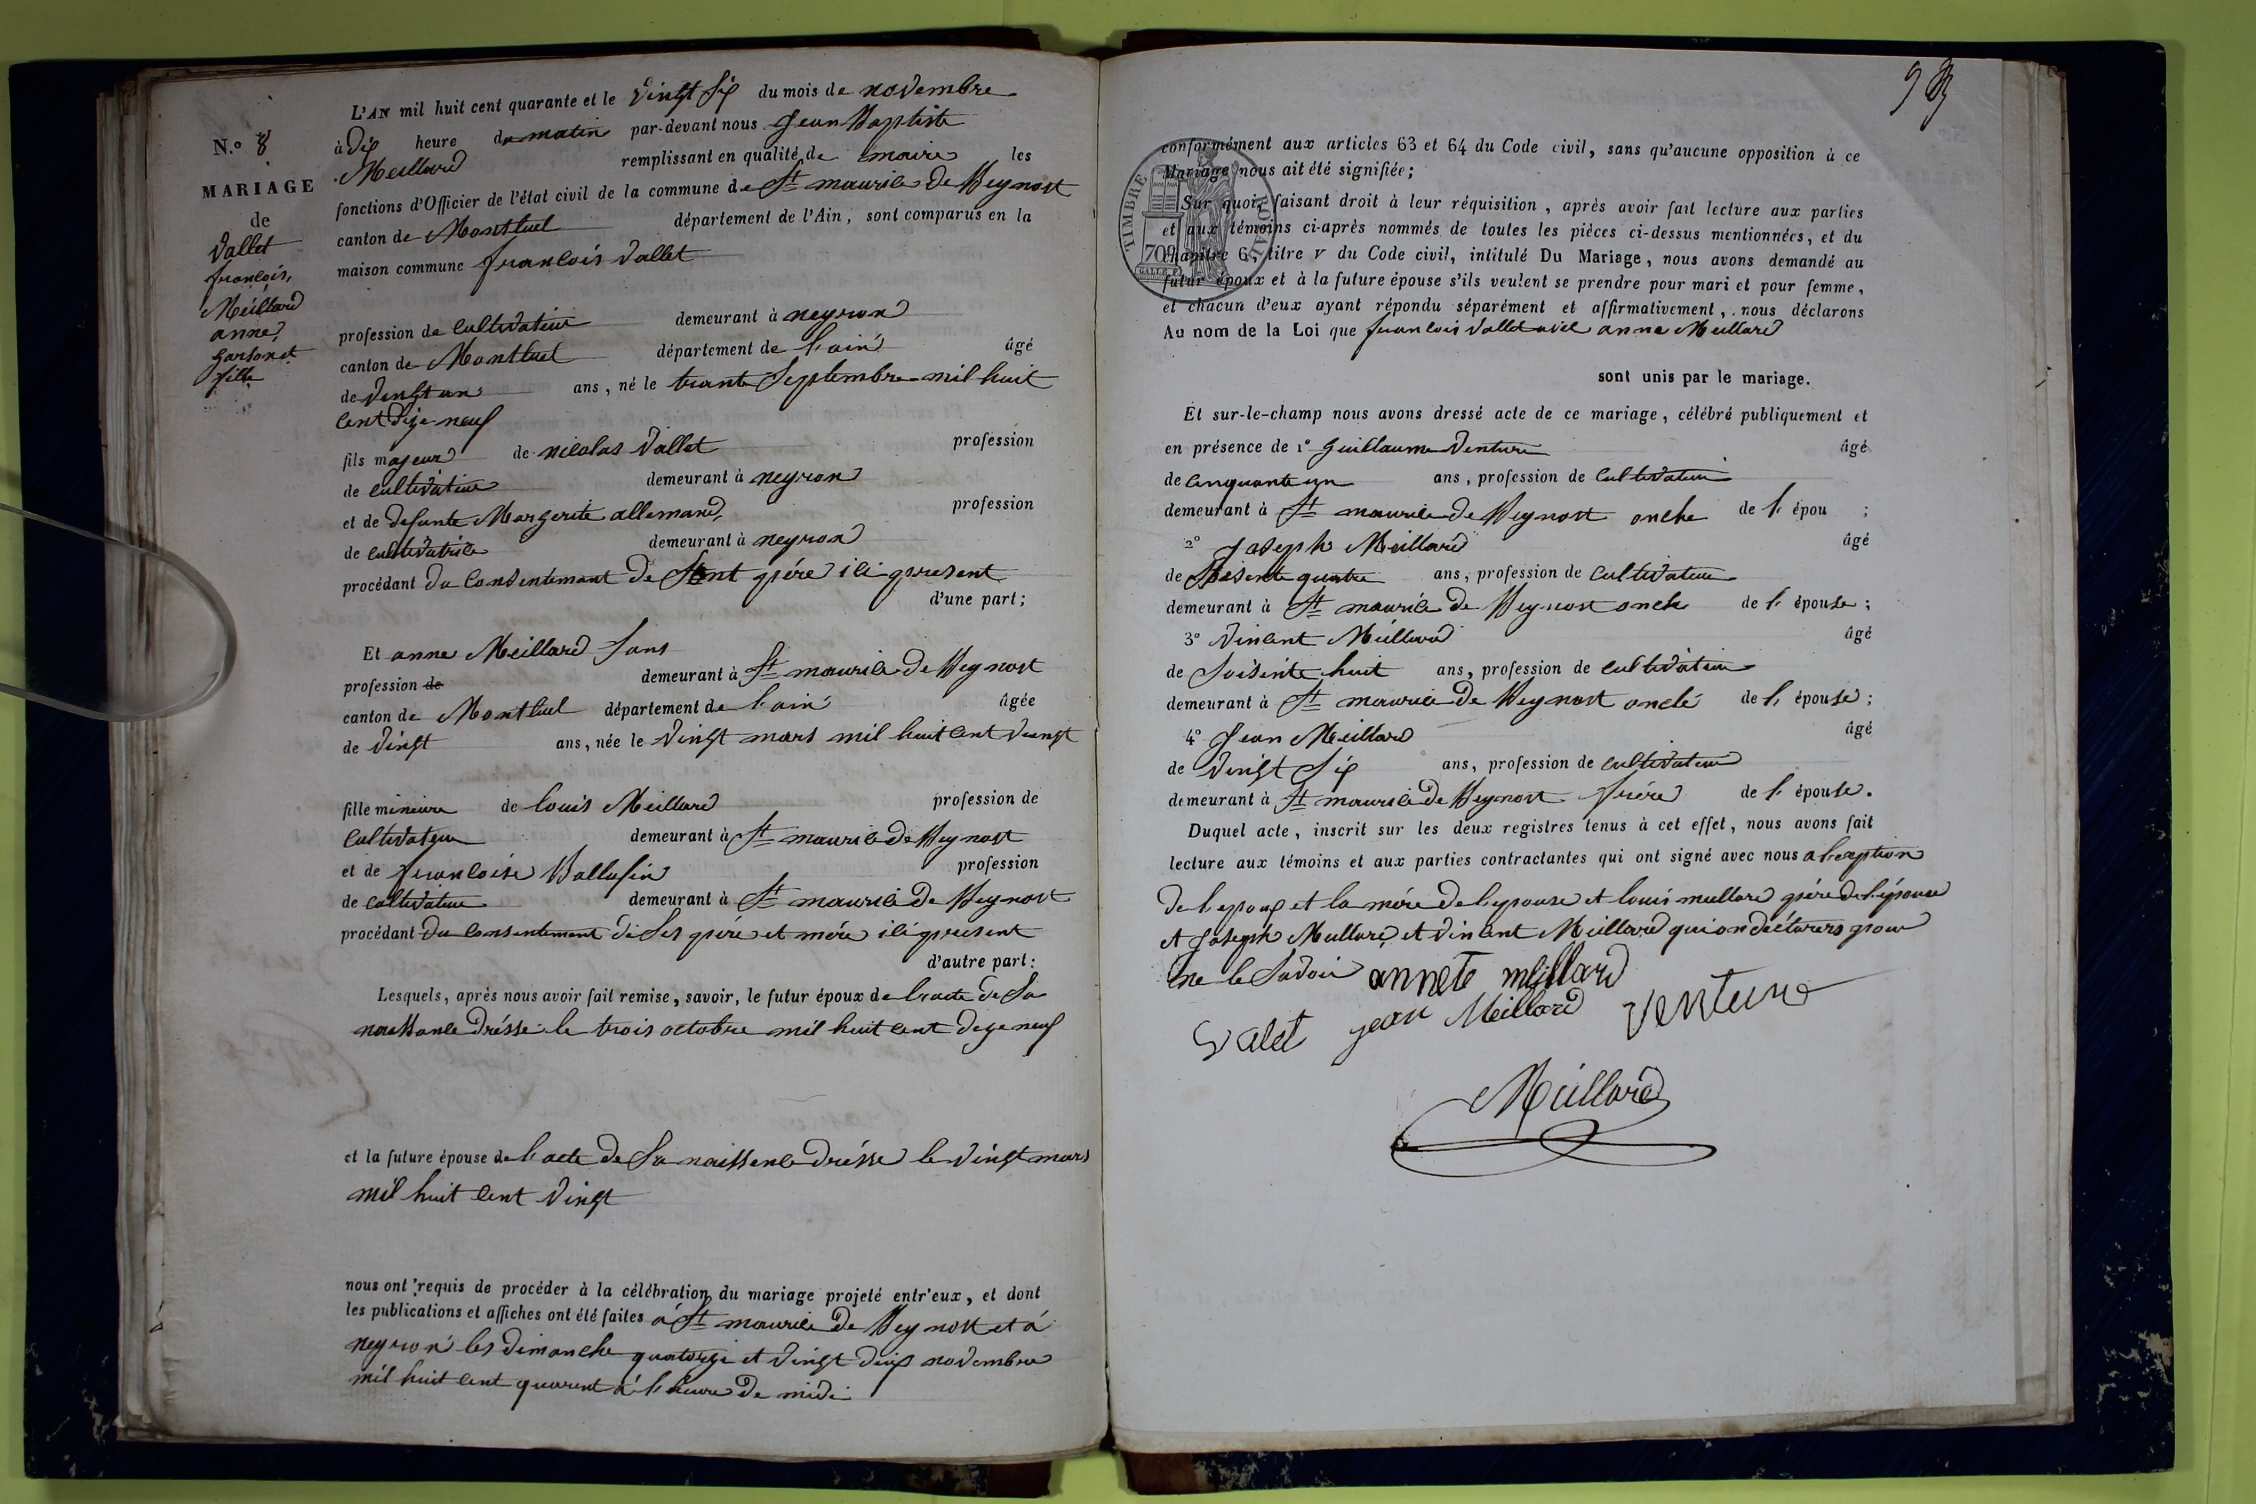 L'AN mil huit cent quarante et le vingt Six du mois de novembre
à Dix heure du matin par-devant nous Jean Baptiste
Meillard remplissant en qualité de maire les
fonctions d'Officier de l'état civil de la commune de St maurice De Beynost
canton de Montluel département de l'Ain, sont comparus en la
maison commune francois vallet
profession de Cultivateur demeurant à neyron
canton de Montluel département de l'ain âgé
de vingt un ans, né le trante Septembre mil huit
cent Dize neuf
fils majeur de nicolas vallet profession
de cultivateur demeurant à neyron
et de defunte Margerite allemand, profession
de cultivatrice demeurant à neyron
procédant du Consentemant De Sont père ici present
d'une part;
Et anne Meillard Sans
profession de demeurant à St maurice De Beynost
canton de Montluel département de l'ain âgée
de vingt ans, née le vingt mars mil huit cent vingt
fille mineure de louis Meillard profession de
Cultivateur demeurant à St maurice De Beynost
et de francoise Ballufin profession
de cultivateur demeurant à St maurice De Beynost
procédant Du Consentemant De Ses père et mère ici present
d'autre part:
Lesquels, après nous avoir fait remise, savoir, le futur époux de l'acte de Sa
naissance Drésse le trois octobre mil huit cent Dize neuf
et la future épouse de l'acte De Sa naissance Drésse le vingt mars
mil huit cent vingt
nous ont requis de procéder à la célébration du mariage projeté entr'eux, et dont
les publications et affiches ont été faites à St maurice De Beynost et à
neyron les Dimanche quatorze et vingt Deux novembre
mil huit cent quarent à l'heure De midi
N.° 8
MARIAGE
de
vallet
francois,
Meillard
anne,
garson et
fille
98
conformément aux articles 63 et 64 du Code civil, sans qu'aucune opposition à ce
Mariage nous ait été signifiée;
Sur quoi, faisant droit à leur réquisition, après avoir fait lecture aux parties
et aux témoins ci-après nommés de toutes les pièces ci-dessus mentionnées, et du
chapitre 6, titre V du Code civil, intitulé Du Mariage, nous avons demandé au
futur époux et à la future épouse s'ils veulent se prendre pour mari et pour femme,
et chacun d'eux ayant répondu séparément et affirmativement, nous déclarons
Au nom de la Loi que francois vallet avec anne Meillard
sont unis par le mariage.
Et sur-le-champ nous avons dressé acte de ce mariage, célébré publiquement et
en présence de 1° Guillaume Venture âgé
de cinquante un ans, profession de Cultivateur
demeurant à St maurice De Beynost oncle de l' épou ;
2° Joseph Meillard âgé
de Soisente quatre ans, profession de Cultivateur
demeurant à St maurice De Beynost oncle de l' épouse;
3° Vincent Meillard âgé
de Soisente huit ans, profession de cultivateur
demeurant à St maurice De Beynost oncle de l' épouse;
4° Jean Meillard âgé
de vingt Six ans, profession de cultivateur
demeurant à St maurice De Beynost frère de l' épouse.
Duquel acte, inscrit sur les deux registres tenus à cet effet, nous avons fait
lecture aux témoins et aux parties contractantes qui ont signé avec nous
De l'epoux et la mère De l'epouse et louis meillard père De l'épouse
et Joseph Meillard et vincent Meillard qui on déclarers pour
ne le Savoir annete meillard
valet jean Meillard venture
Meillard
TIMBRE ROYAL
70